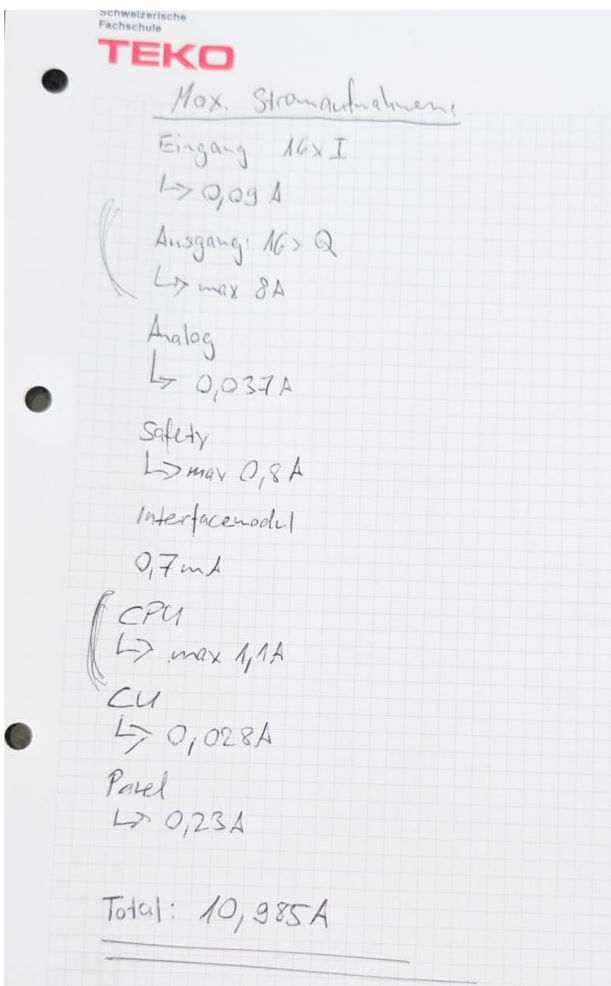 Schweizerische
Fachschule
TEKO
Max. Stromaufnahmen:
Eingang 16x I
↳ 0,09 A
Ausgang: 16x Q
↳ max 8A
Analog
↳ 0,037A
Safety
↳ max 0,8A
Interfacemodul
0,7mA
CPU
↳ max 1,1A
CU
↳ 0,028A
Panel
↳ 0,23A
Total: 10,985A